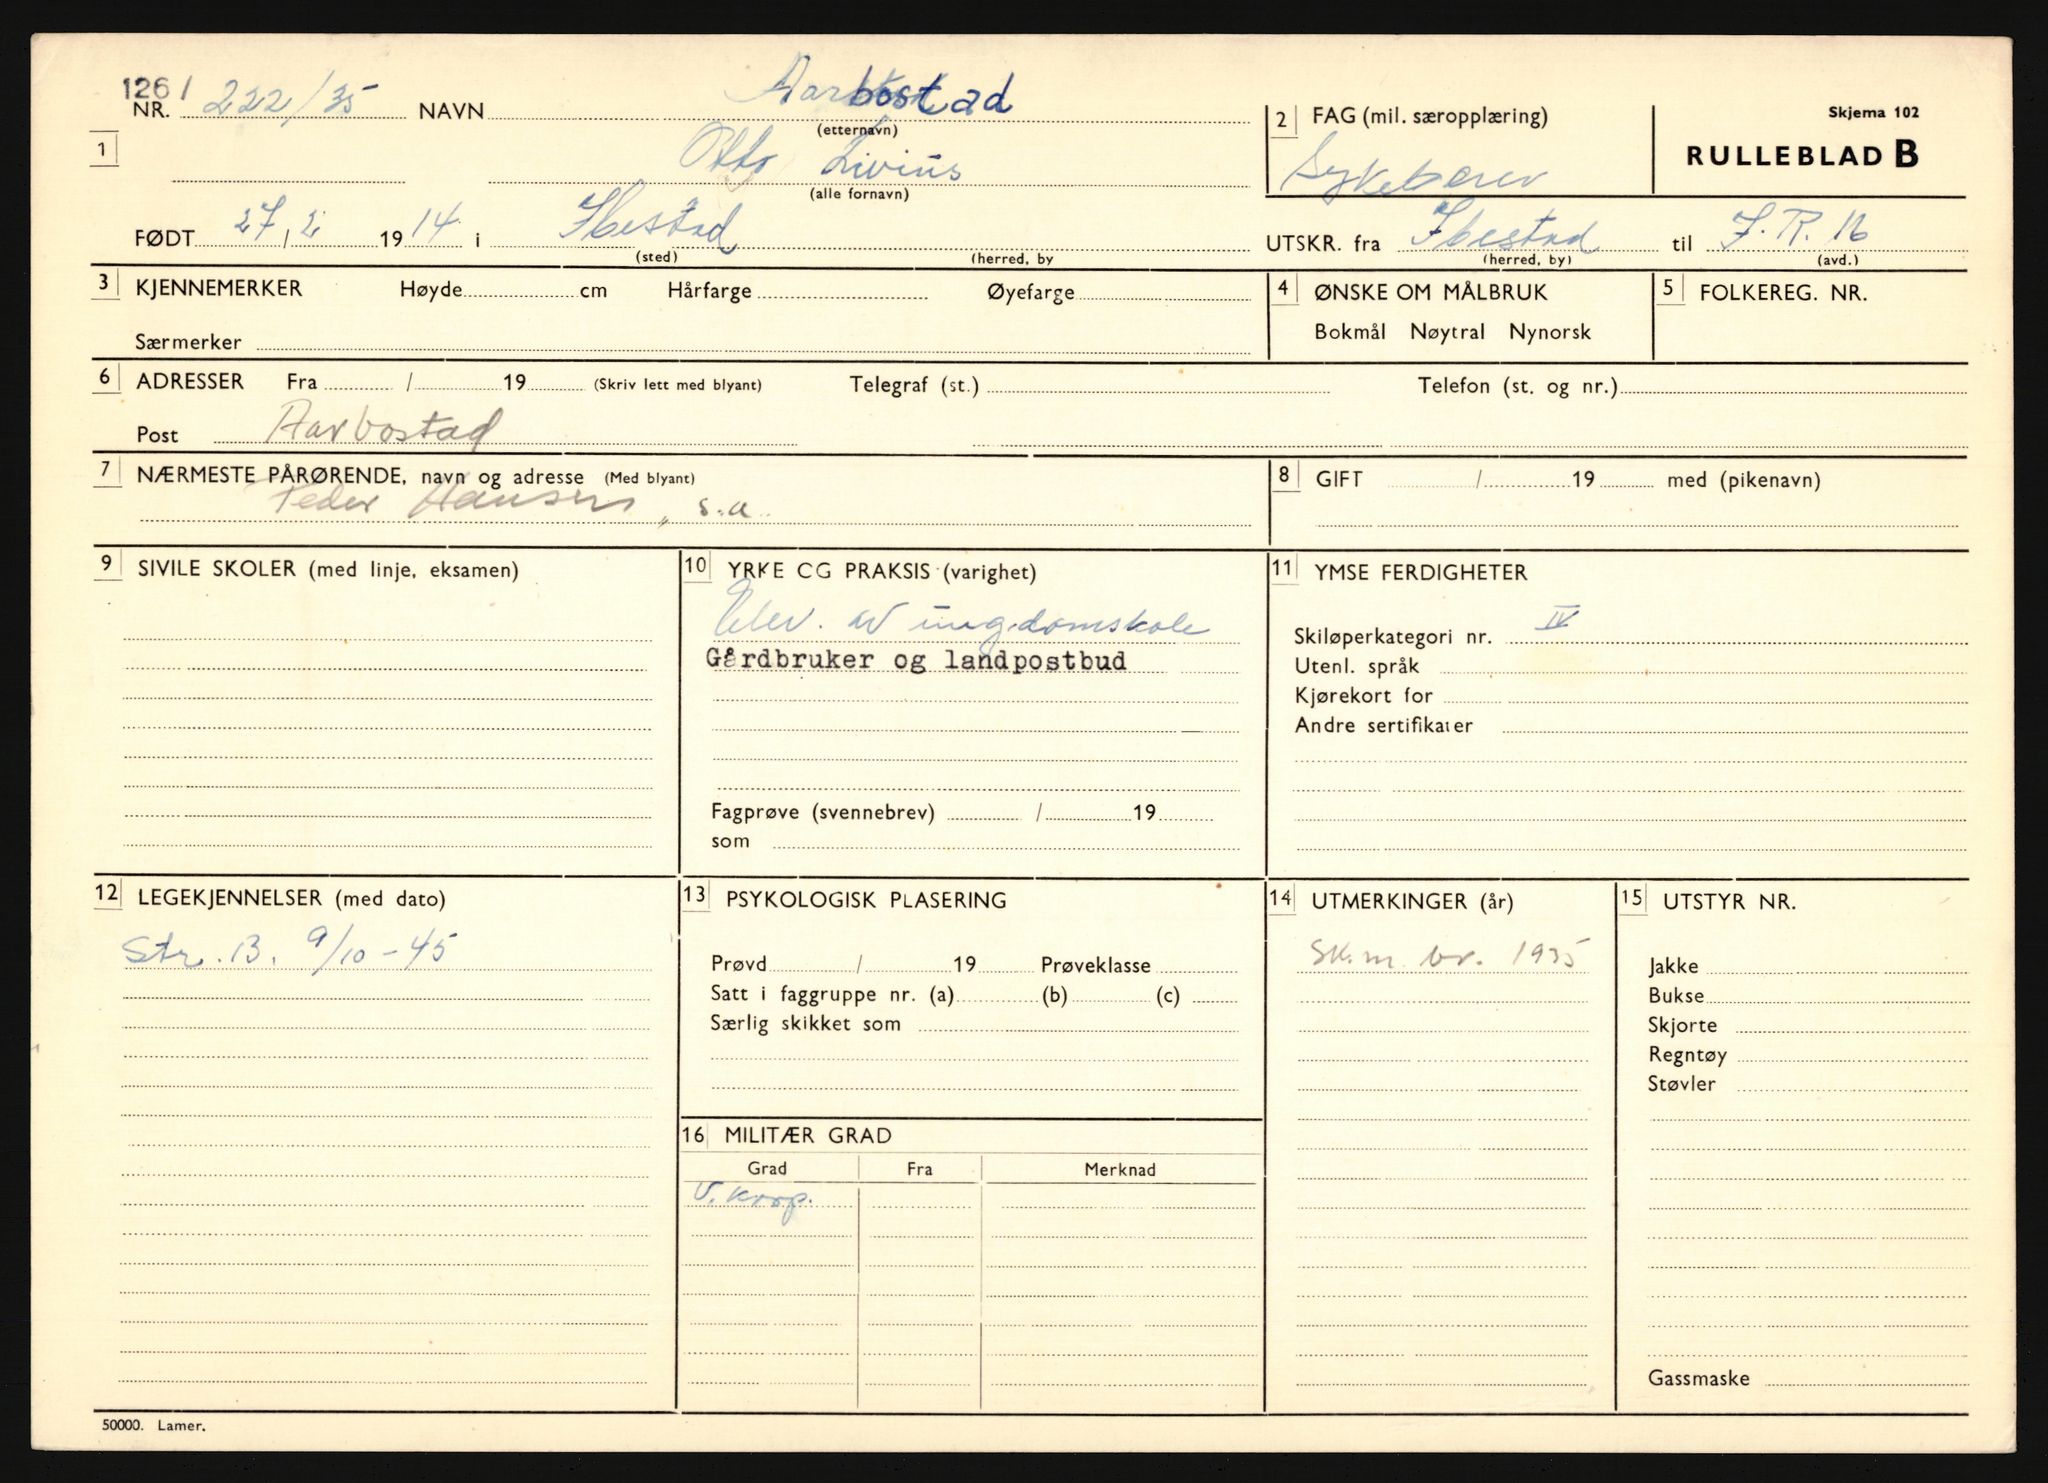 1261
NR. 222/35 NAVN Aarbostad
(etternavn)
2 FAG (mil. særopplæring)
Skjema 102
RULLEBLAD B
1
Otto Livius
(alle fornavn)
Sykebærer
FØDT 27 / 2 19 14 i Ibestad
(sted) (herred, by
UTSKR. fra Ibestad til I.R. 16
(herred, by) (avd.)
3 KJENNEMERKER Høyde cm Hårfarge Øyefarge
Særmerker
4 ØNSKE OM MÅLBRUK
Bokmål Nøytral Nynorsk
5 FOLKEREG. NR.
6 ADRESSER Fra / 19 (Skriv lett med blyant) Telegraf (st.) Telefon (st. og nr.)
Post Aarbostad
7 NÆRMESTE PÅRØRENDE, navn og adresse (Med blyant)
Peder Hansen, s.a.
8 GIFT / 19 med (pikenavn)
9 SIVILE SKOLER (med linje, eksamen)
10 YRKE OG PRAKSIS (varighet)
Elev. av ungdomskole
Gårdbruker og landpostbud
Fagprøve (svennebrev) / 19
som
11 YMSE FERDIGHETER
Skiløperkategori nr. IV
Utenl. språk
Kjørekort for
Andre sertifikater
12 LEGEKJENNELSER (med dato)
Str. B. 9/10-45
13 PSYKOLOGISK PLASERING
Prøvd / 19 Prøveklasse
Satt i faggruppe nr. (a) (b) (c)
Særlig skikket som
14 UTMERKINGER (år)
Sk.m. br. 1935
15 UTSTYR NR.
Jakke
Bukse
Skjorte
Regntøy
Støvler
Gassmaske
16 MILITÆR GRAD
Grad Fra Merknad
V. korp.
50000. Lamer.